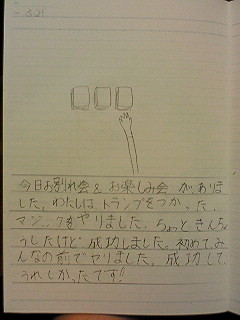 3.21
今日お別れ会&お楽しみ会がありま
した。わたしは、トランプをつかった、
マジックをやりました。ちょっときんちょ
うしたけど成功しました。初めてみ
んなの前でやりました。成功して
うれしかったです!!